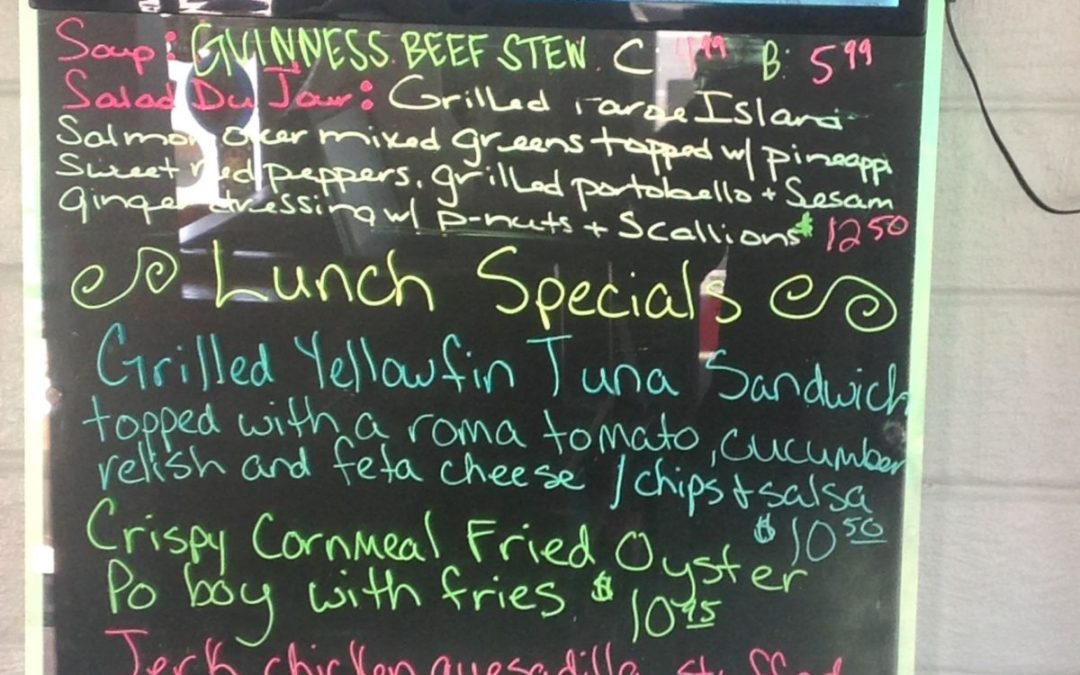 Soup: GUINNESS BEEF STEW. C 4.99 B: 5 99
Salad Du Jour: Grilled Faroe Island
Salmon over mixed greens topped w/ pineappl
Sweet red peppers, grilled portobello + Sesam
ginger dressing w/ p-nuts + Scallions $12 50
Lunch Specials
Grilled Yellowfin Tuna Sandwich
topped with a roma tomato, cucumber
relish and feta cheese / chips + salsa
$10 50
Crispy Cornmeal Fried Oyster
Po boy with fries $10 95
Jerk chicken quesadilla stuffed